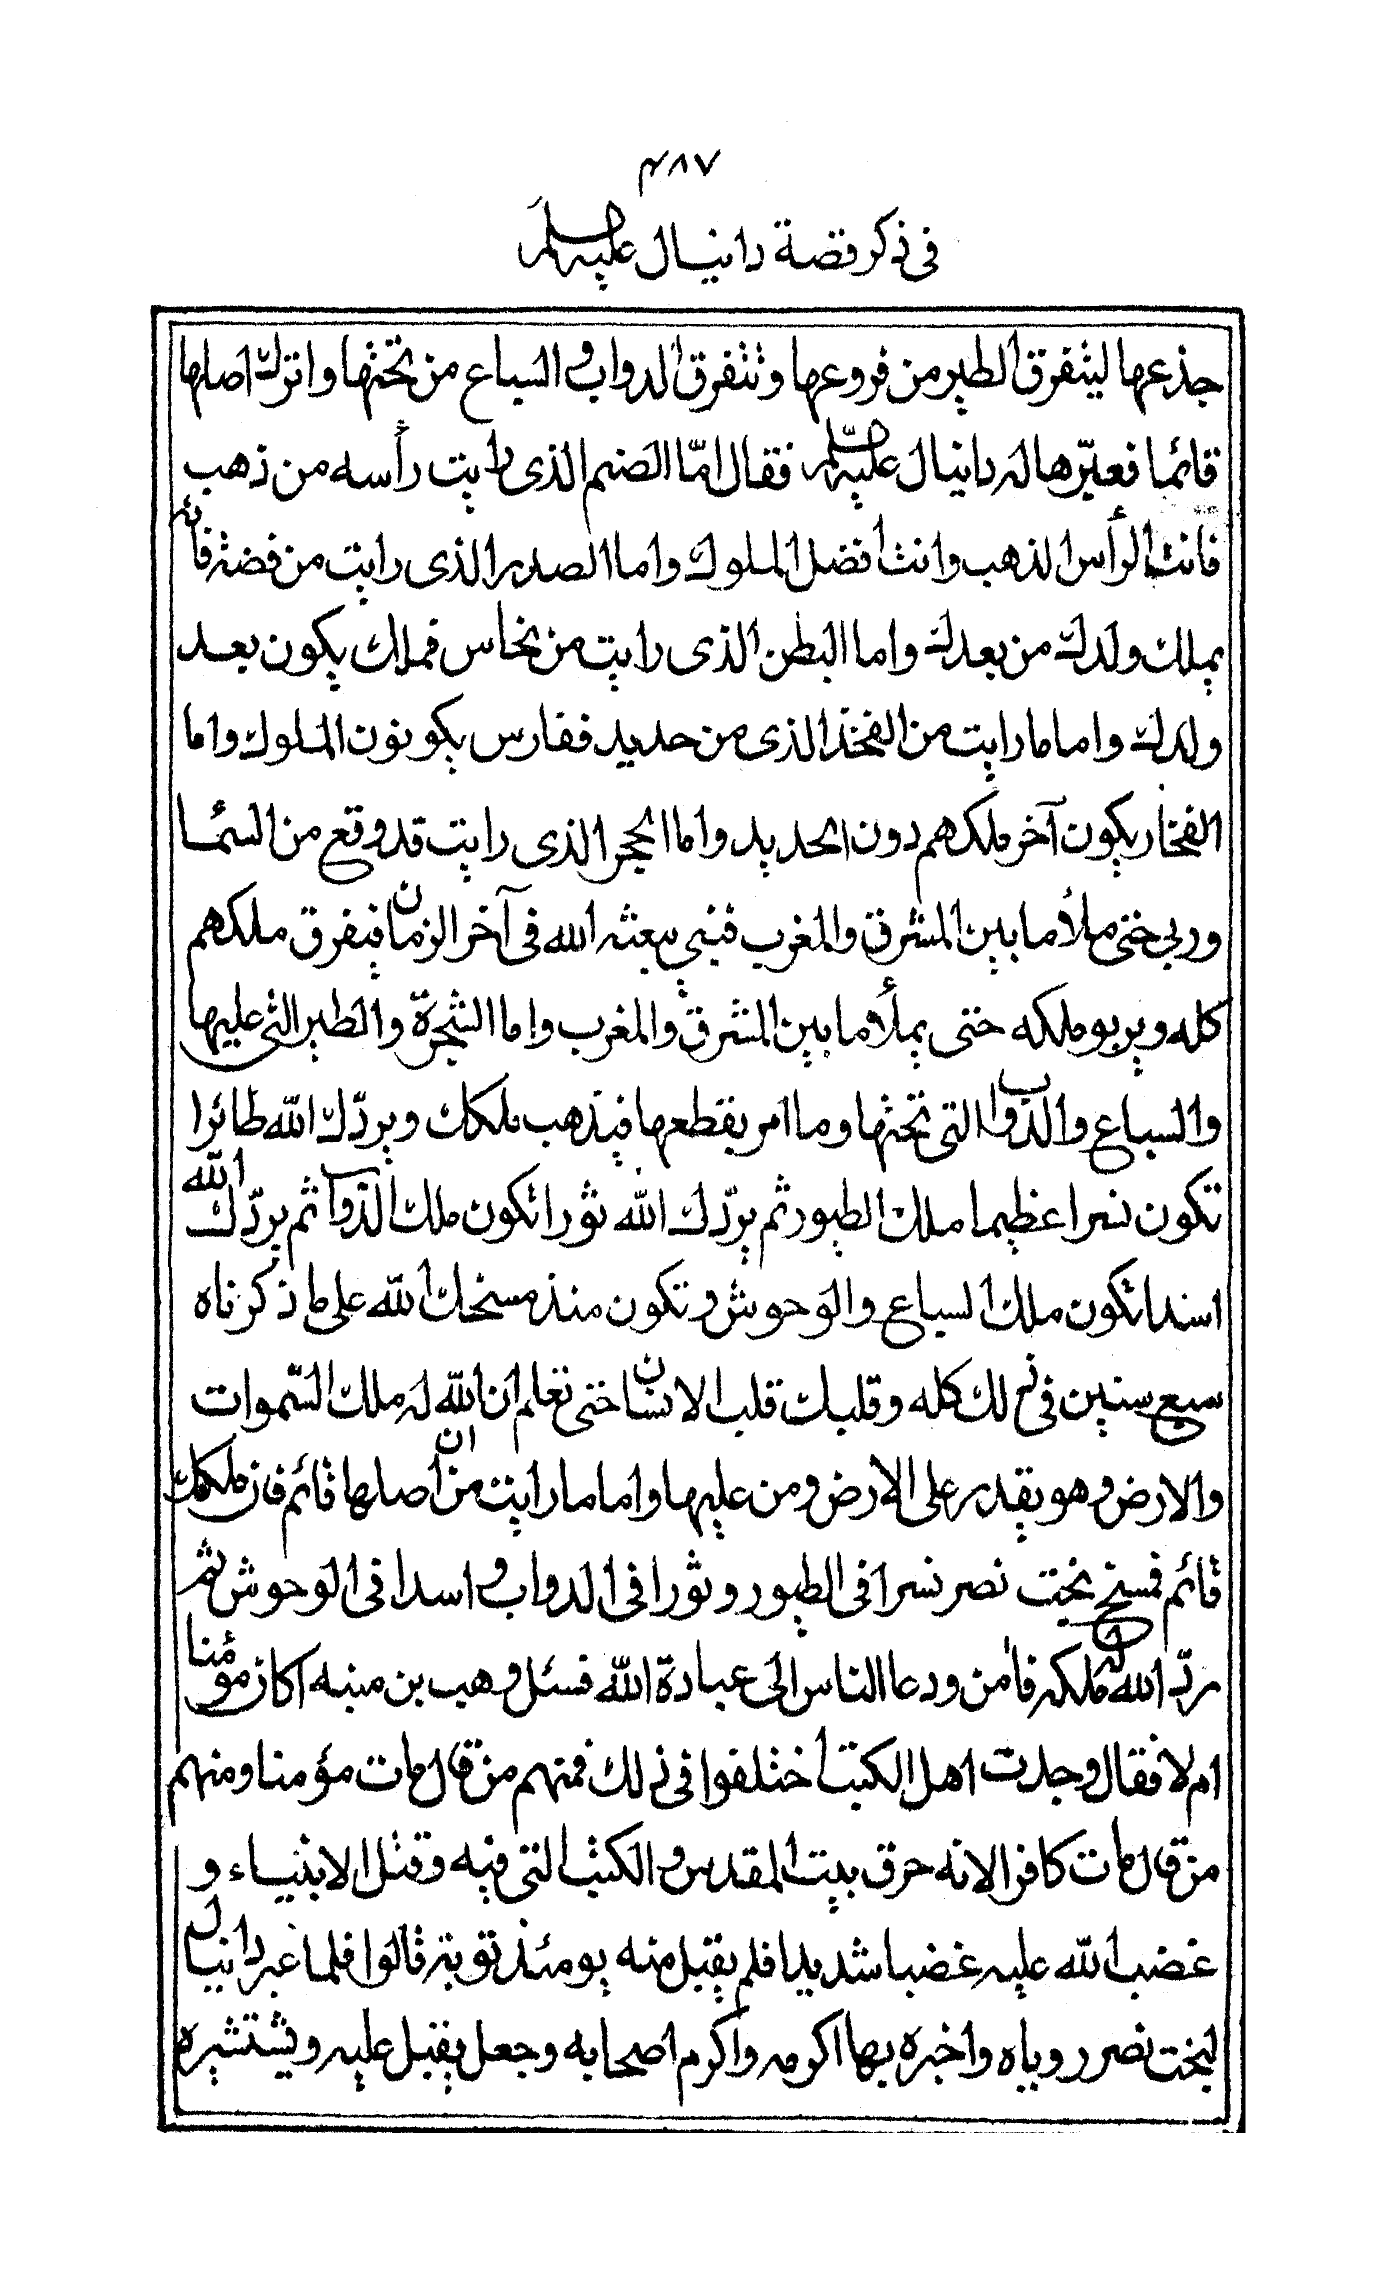 ٤٨٧
في ذكر قصة دانيال عليه السلام
جذعها ليتفرق الطير من فروعها وتتفرق الدواب و السباع من تحتها واترك اصلها
قائما فعبّرها له دانيال عليه السّلام فقال امّا الصنم الذى رايت رأسه من ذهب
فانت الرأس الذهب وانت افضل الملوك واما الصدر الذى رايت من فضة فانه
يملك ولدك من بعدك واما البطن الذى رايت من نحاس فملك يكون بعد
ولدك واما ما رايت من الفخذ الذى من حديد ففارس يكونون الملوك واما
الفخار يكون آخر ملكهم دون الحديد واما الحجر الذى رايت قد وقع من السما
وربى حتى ملأ ما بين المشرق والمغرب فنبي يبعثه الله فى آخر الزمان فيفرق ملكهم
كله ويربو ملكه حتى يملأ ما بين المشرق والمغرب واما الشجرة والطير التى عليها
والسباع والدواب التى تحتها وما امر بقطعها فيذهب ملكك ويردّك الله طائرا
تكون نسرا عظيما ملك الطيور ثم يردّك الله ثورا تكون ملك الدّواب ثم يردّك الله
اسدا تكون ملك السباع والوحوش وتكون منذ مسخك الله على ما ذكرناه
سبع سنين فى ذلك كله وقلبك قلب الانسان حتى تعلم ان الله له ملك السّموات
والارض وهو يقدر على الارض ومن عليها واما ما رايت من ان اصلها قائم فان ملكك
قائم فمسخ بخت نصر نسرا فى الطيور وثورا فى الدواب و اسدا فى الوحوش ثم
ردّ الله له ملكه فامن ودعا الناس الى عبادة الله فسئل وهب بن منبه اكان مؤمنا
ام لا فقال وجدت اهل الكتب اختلفوا فى ذلك فمنهم من قال مات مؤمنا ومنهم
من قال مات كافرا لانه حرق بيت المقدس و الكتب التى فيه وقتل الانبياء و
غضب الله عليه غضبا شديدا فلم يقبل منه يومئذ توبة قالوا فلما عبر دانيال
لبخت نصر روياه واخبره بها اكرمه واكرم اصحابه وجعل يقبل عليه ويستشيره